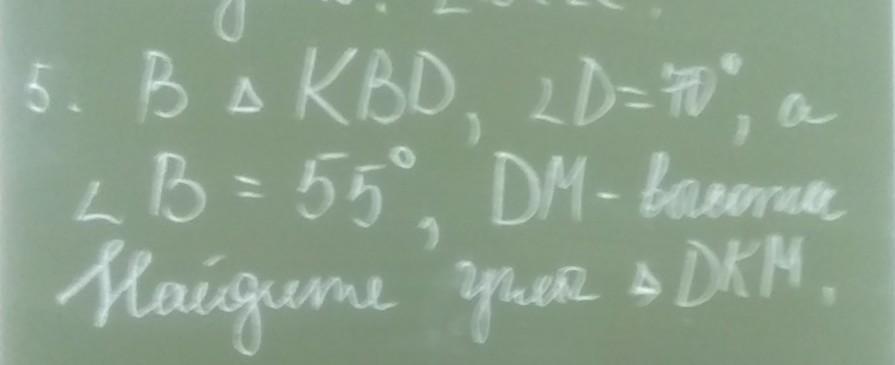 5. В △ KBD, ∠D=70°, а
∠B = 55°, DM - высота
Найдите углы △ DKM.